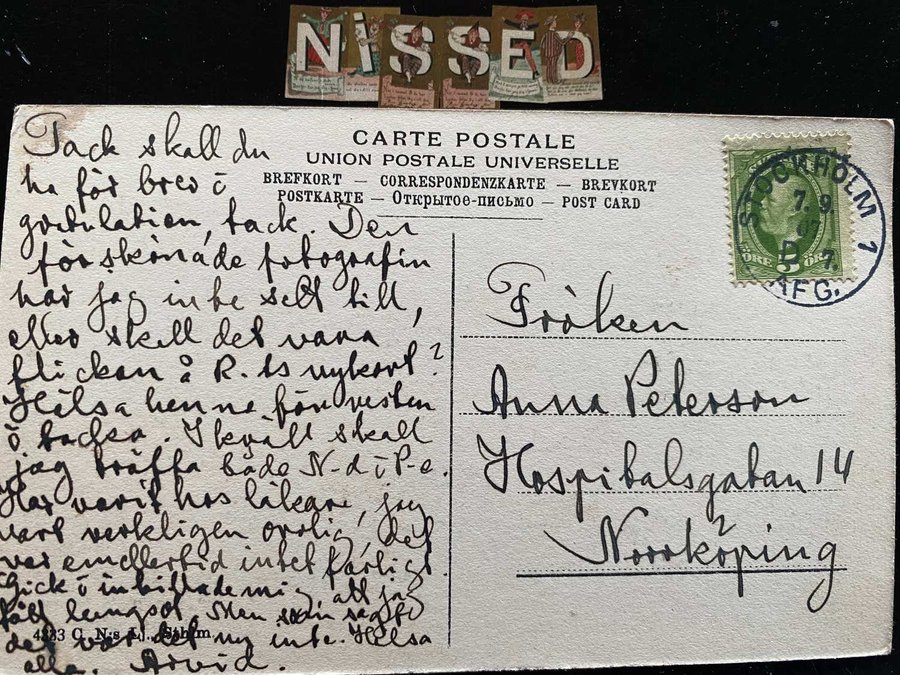 NISSED
CARTE POSTALE
UNION POSTALE UNIVERSELLE
BREFKORT — CORRESPONDENZKARTE — BREVKORT
POSTKARTE — Открытое-письмо — POST CARD
Tack skall du
ha för brev i
gratulation, tack. Den
förskönade fotografin
har jag inte sett till,
eller skall det vara
flickan å R. ts nykort?
Hälsa henne för resten
o tacka. I kväll skall
jag träffa både N-d i P-e.
Har varit hos läkare, jag
vart verkligen orolig, det
var emellertid intet farligt.
Gick i inbillade mig, att jag
fått lungsot. Men som sagt
det var det nu inte. Hälsa
alla. Arvid.
4333 C. N:s L., Sthlm
STOCKHOLM 1
7. 9.
AFG.
5 ÖRE
Fröken
Anna Peterson
Hospitalsgatan 14
Norrköping